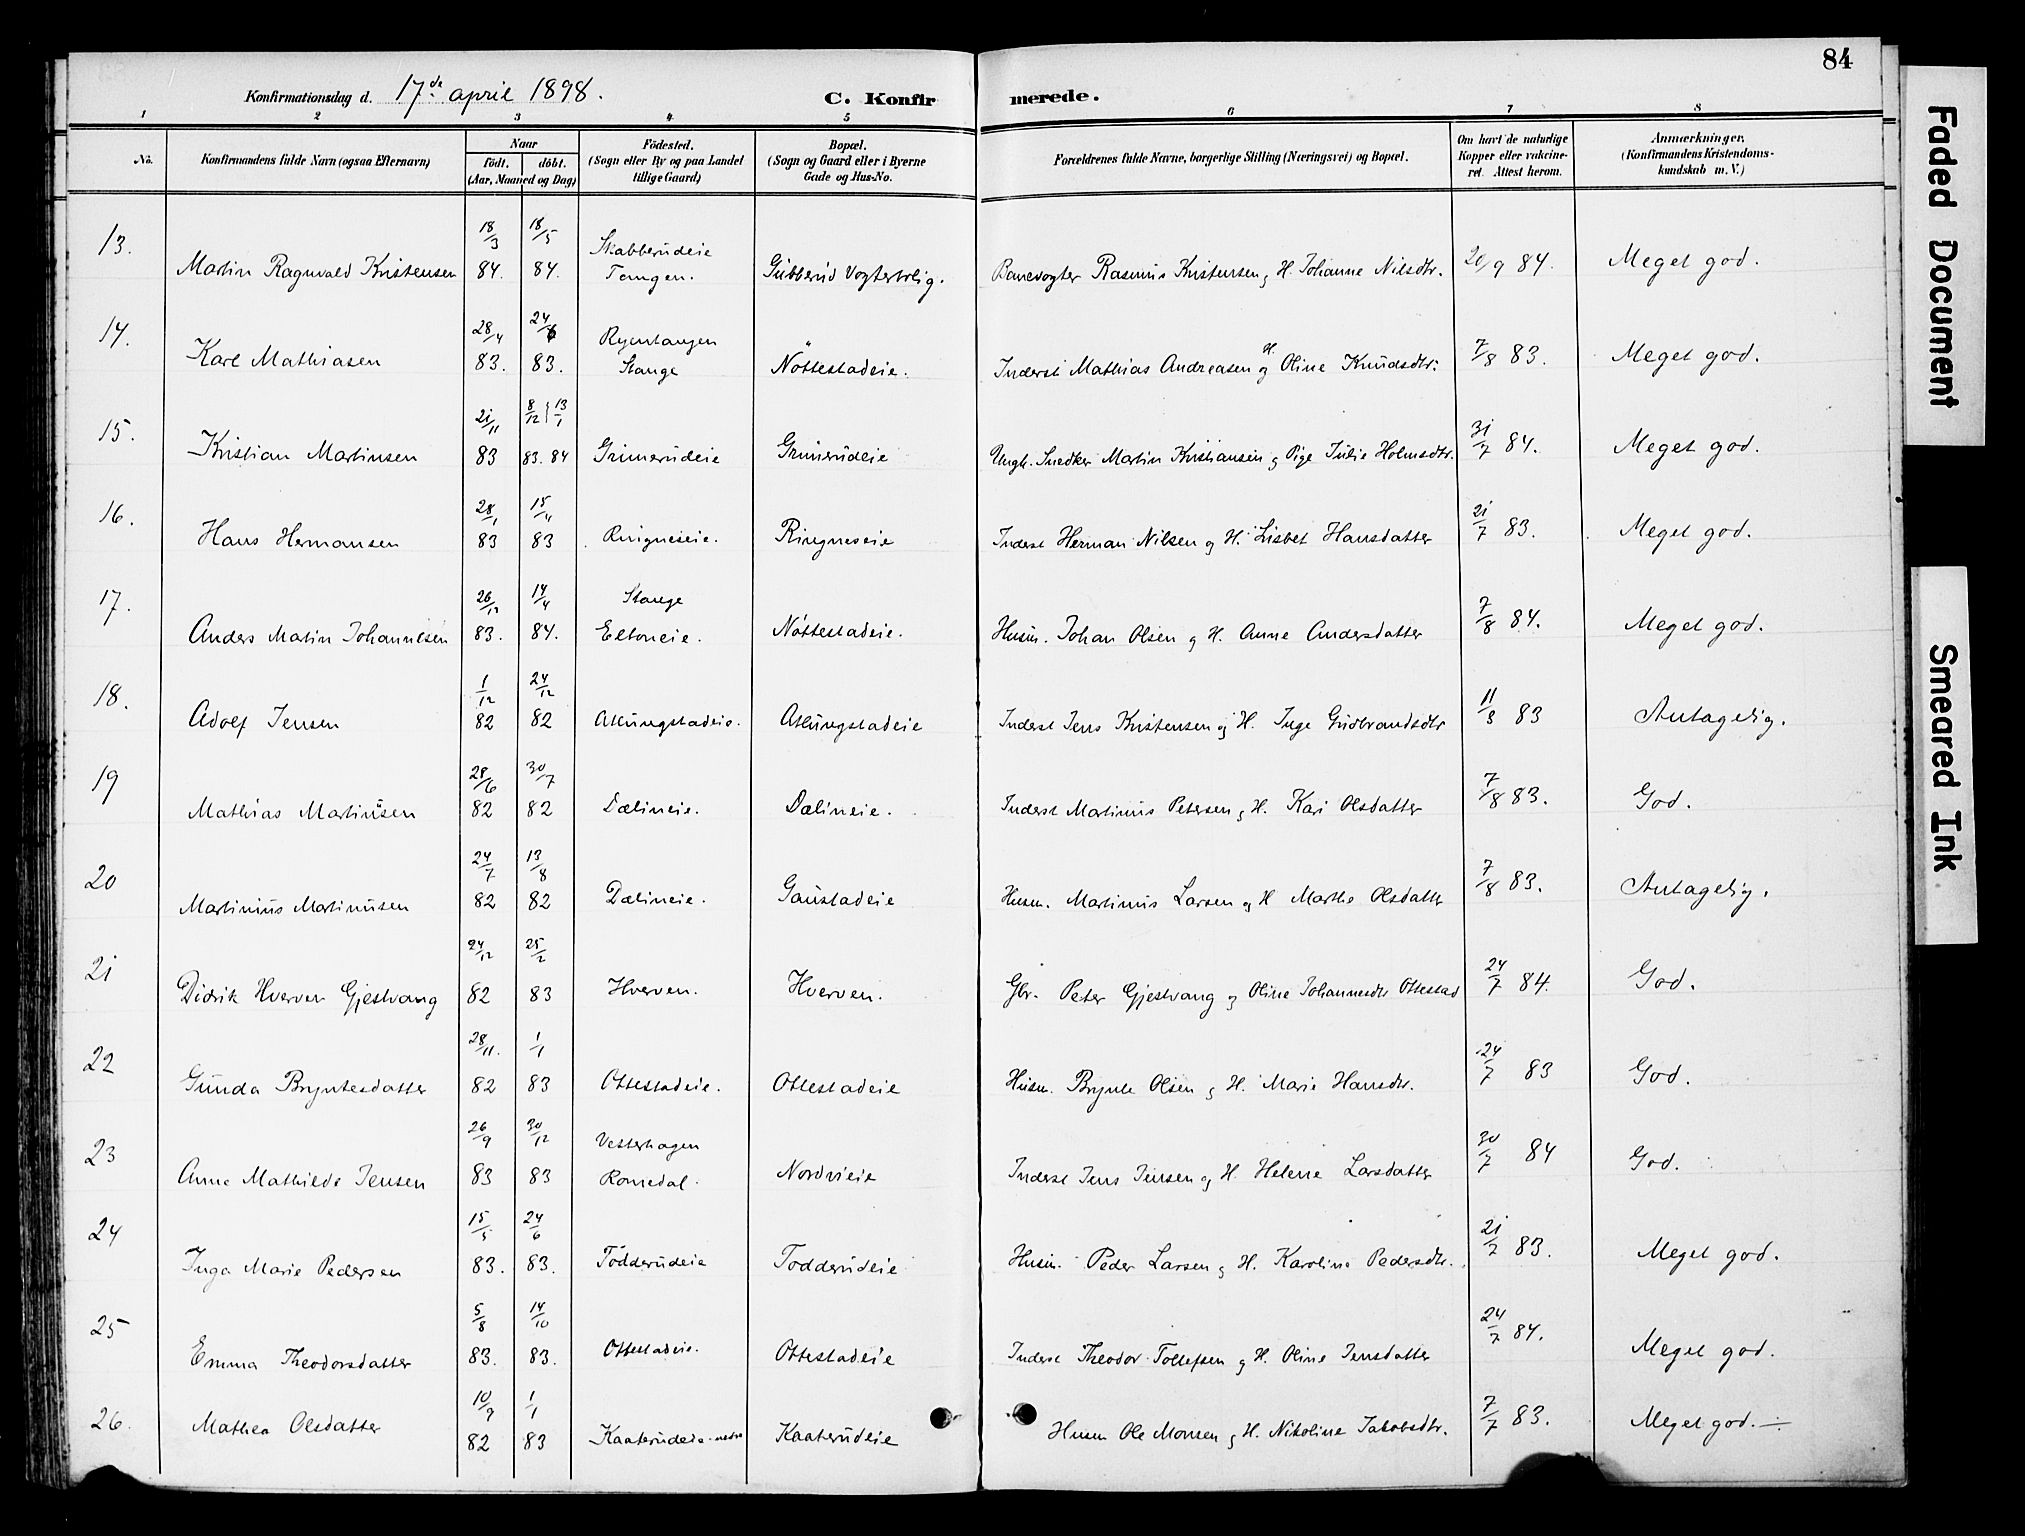 84
Konfirmationsdag d. 17de april 1898. C. Konfirmerede.
1 2 3 4 5 6 7 8
No. Konfirmandens fulde Navn (ogsaa Efternavn) Naar födt. döbt. (Aar, Maaned og Dag) Födested. (Sogn eller By og paa Landet tillige Gaard) Bopæl. (Sogn og Gaard eller i Byerne Gade og Hus-No. Forældrenes fulde Navne, borgerlige Stilling (Næringsvei) og Bopæl. Om havt de naturlige Kopper eller vakcineret. Attest herom. Anmærkninger, (Konfirmandens Kristendomskundskab m. V.)
13. Martin Ragnvald Kristensen 18/3 84. 18/5 84. Skabberudeie Tangen. Gubberud Vogterbolig. Banevogter Rasmus Kristensen og H. Johanne Nilsdtr. 20/9 84. Meget god.
14. Karl Mathiasen 28/4 83. 24/6 83. Stange Nöttestadeie. Inderst Mathias Andreasen og H. Oline Knudsdtr. 7/8 83. Meget god.
15. Kristian Martinsen 21/11 83 8/12 83. 13/1 84 Grimerudeie Grimerudeie Ungk. Snedker Martin Kristiansen og Pige Julie Holmsdtr. 31/7 84. Meget god.
16. Hans Hermansen 28/1 83 15/4 83 Ringneseie. Ringneseie Inderst Herman Nilsen og H. Lisbet Hansdatter 21/7 83. Meget god.
17. Anders Martin Johannesen 26/12 83. 14/4 84. Stange Eltoneie. Nöttestadeie. Husm. Johan Olsen og H. Anne Andersdatter 7/8 84. Meget god.
18. Adolf Jensen 1/12 82 24/12 82 Atlungstadeie. Atlungstadeie Inderst Jens Kristensen og H. Inge Gudbrandsdtr 11/3 83 Antagelig.
19 Mathias Martinusen 28/6 82 30/7 82 Dælineie. Dælineie. Inderst Martinus Petersen og H. Kari Olsdatter 7/8 83. God.
20 Martinius Martinusen 24/7 82 13/8 82 Dælineie. Gaustadeie Husm. Martinus Larsen og H Marthe Olsdatter 7/8 83. Antagelig.
21 Didrik Hverven Gjestvang 24/12 82 25/2 83 Hverven. Hverven. Gbr. Peter Gjestvang og Oline Johannesdtr Ottestad 24/7 84. God.
22 Gunda Bryntesdatter 28/11. 82 1/1 83 Ottestadeie. Ottestadeie Husm. Brynte Olsen og H. Marie Hansdtr. 24/7 83 God.
23 Anne Mathilde Jensen 26/9 83 30/12 83 Vesterhagen Romedal. Nordvieie Inderst Jens Jensen og H. Helene Larsdatter 30/7 84 God.
24 Inga Marie Pedersen 15/5 83. 24/6 83. Tödderudeie Todderudeie Husm. Peder Larsen og H. Karoline Pedersdtr. 21/7 83. Meget god.
25 Emma Theodorsdatter 5/8 83. 14/10 83. Ottestadeie. Ottestadeie Inderst Theodor Tollefsen og H. Oline Jensdatter 24/7 84. Meget god.
26. Mathea Olsdatter 10/9 82 1/1 83 Kaaterudeie nedre Kaaterudeie Husm Ole Monsen og H. Nikoline Jakobsdtr. 7/7 83. Meget god.
Faded Document
Smeared Ink